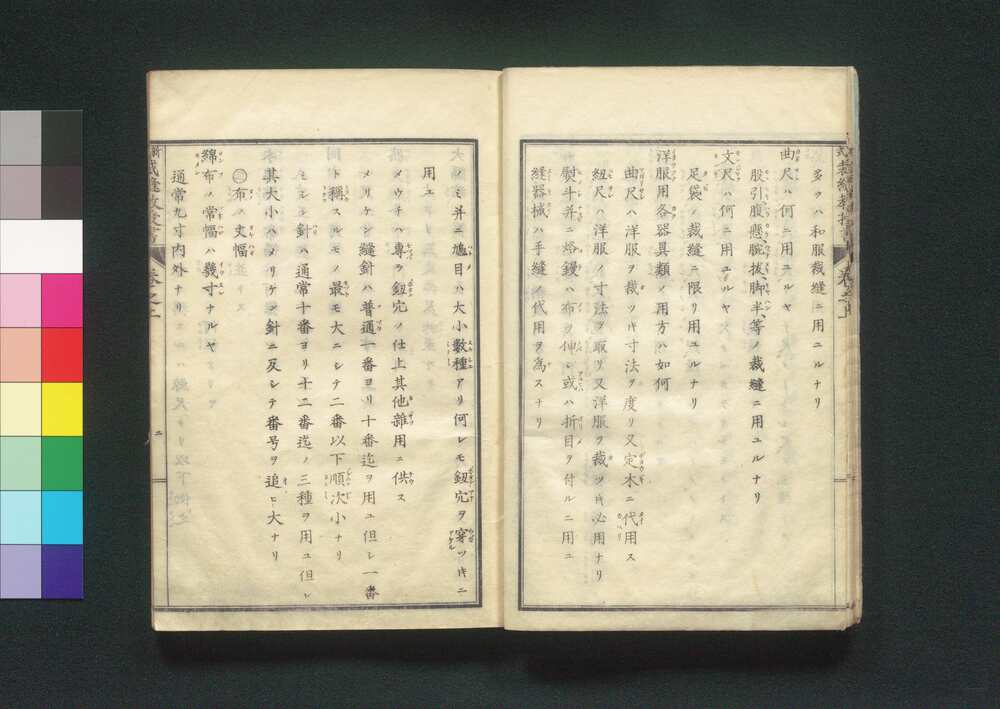 多クハ和服裁縫ニ用ユルナリ
曲尺ハ何ニ用ユルヤ
股引腹懸、腕抜、脚半、等ノ裁縫ニ用ユルナリ
文尺ハ何ニ用ユルヤ
足袋ノ裁縫ニ限リ用ユルナリ
洋服用各器具類ノ用方ハ如何
曲尺ハ洋服ヲ裁ツキ寸法ヲ度リ又定木ニ代用ス
紐尺ハ洋服ノ寸法ヲ取リ又洋服ヲ裁ツキ必用ナリ
熨斗并ニ烙鏝ハ布ヲ伸シ或ハ折目ヲ付ルニ用ユ
縫器械ハ手縫ノ代用ヲ為スナリ
ノミ并ニ鳩目ハ大小數種アリ何レモ鈕宂ヲ穿ツキニ
用ユ
メウチハ専ラ鈕宂ノ仕上其他雜用ニ供ス
メリケン縫針ハ普通一番ヨリ十番迄ヲ用ユ但シ一番
ト稱スルモノ最モ大ニシテ二番以下順次小ナリ
シン針ハ通常十番ヨリ十二番迄ノ三種ヲ用ユ但シ
其大小ハメリケン針ニ反シテ番号ヲ追ヒ大ナリ
㊂布ノ丈幅
綿布ノ常幅ハ幾寸ナルヤ
通常九寸内外ナリ
裁縫教授書 卷之上 二